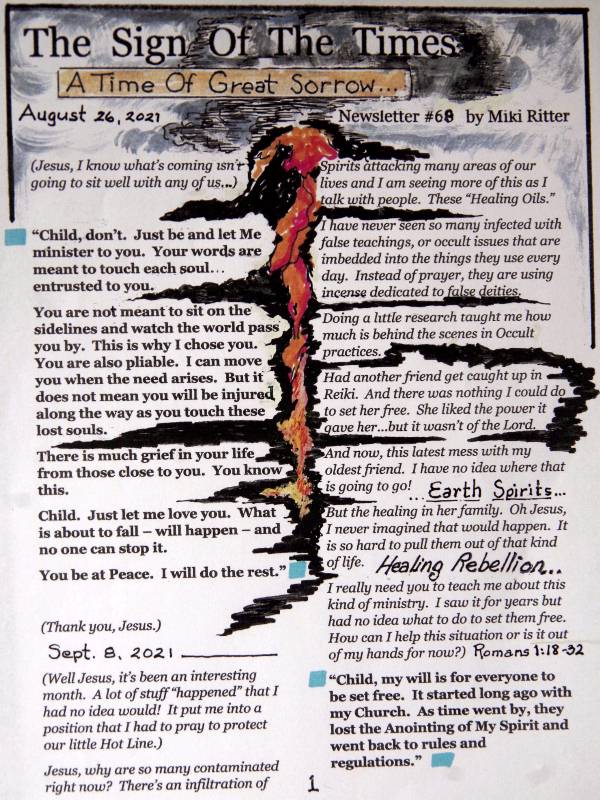 The Sign Of The Times
A Time Of Great Sorrow...
August 26, 2021
Newsletter #68 by Miki Ritter
(Jesus, I know what's coming isn't
going to sit well with any of us...)
"Child, don't. Just be and let Me
minister to you. Your words are
meant to touch each soul...
entrusted to you.
You are not meant to sit on the
sidelines and watch the world pass
you by. This is why I chose you.
You are also pliable. I can move
you when the need arises. But it
does not mean you will be injured
along the way as you touch these
lost souls.
There is much grief in your life
from those close to you. You know
this.
Child. Just let me love you. What
is about to fall – will happen – and
no one can stop it.
You be at Peace. I will do the rest."
(Thank you, Jesus.)
Sept. 8, 2021
(Well Jesus, it's been an interesting
month. A lot of stuff "happened" that I
had no idea would! It put me into a
position that I had to pray to protect
our little Hot Line.)
Jesus, why are so many contaminated
right now? There's an infiltration of
Spirits attacking many areas of our
lives and I am seeing more of this as I
talk with people. These "Healing Oils."
I have never seen so many infected with
false teachings, or occult issues that are
imbedded into the things they use every
day. Instead of prayer, they are using
incense dedicated to false deities.
Doing a little research taught me how
much is behind the scenes in Occult
practices.
Had another friend get caught up in
Reiki. And there was nothing I could do
to set her free. She liked the power it
gave her...but it wasn't of the Lord.
And now, this latest mess with my
oldest friend. I have no idea where that
is going to go! ...Earth Spirits...
But the healing in her family. Oh Jesus,
I never imagined that would happen. It
is so hard to pull them out of that kind
of life. Healing Rebellion..
I really need you to teach me about this
kind of ministry. I saw it for years but
had no idea what to do to set them free.
How can I help this situation or is it out
of my hands for now?) Romans 1:18-32
"Child, my will is for everyone to
be set free. It started long ago with
my Church. As time went by, they
lost the Anointing of My Spirit and
went back to rules and
regulations."
1